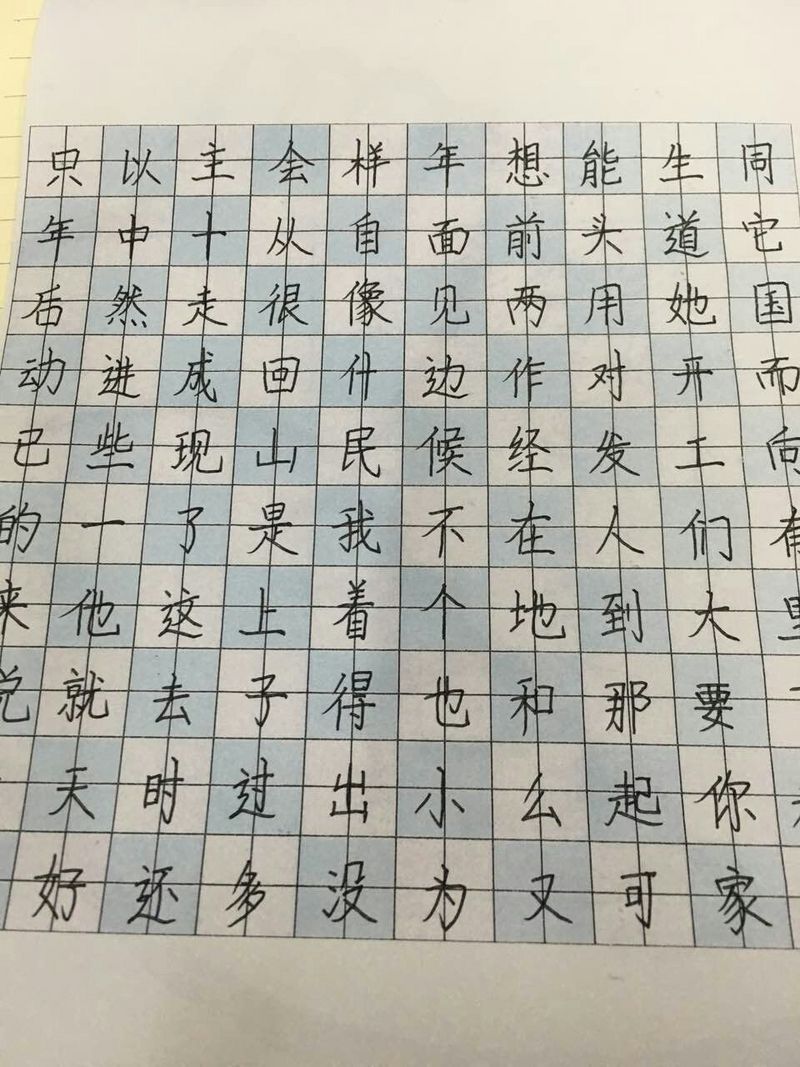 只以主会样年想能生同
年中十从自面前头道它
后然走很像见两用她国
动进成回什边作对开而
已些现山民候经发工向
的一了是我不在人们有
来他这上着个地到大里
说就去子得也和那要
天时过出小么起你
好还多没为又可家